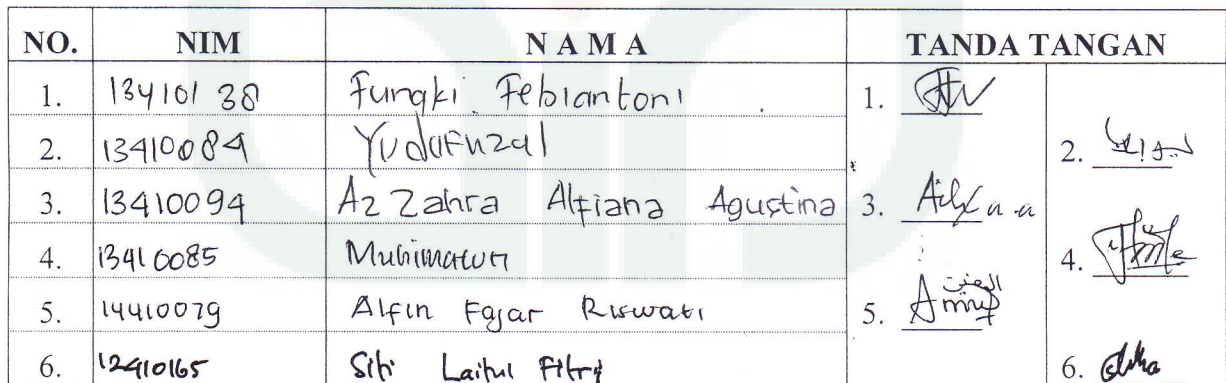 NO. NIM N A M A TANDA TANGAN
1. 13410138 Fungki Febiantoni 1.
2. 13410084 Yudafuzal 2.
3. 13410094 Az Zahra Alfiana Agustina 3.
4. 13410085 Muhimatun 4.
5. 14410079 Alfin Fajar Riswati 5.
6. 12410165 Siti Laitul Fitri 6.